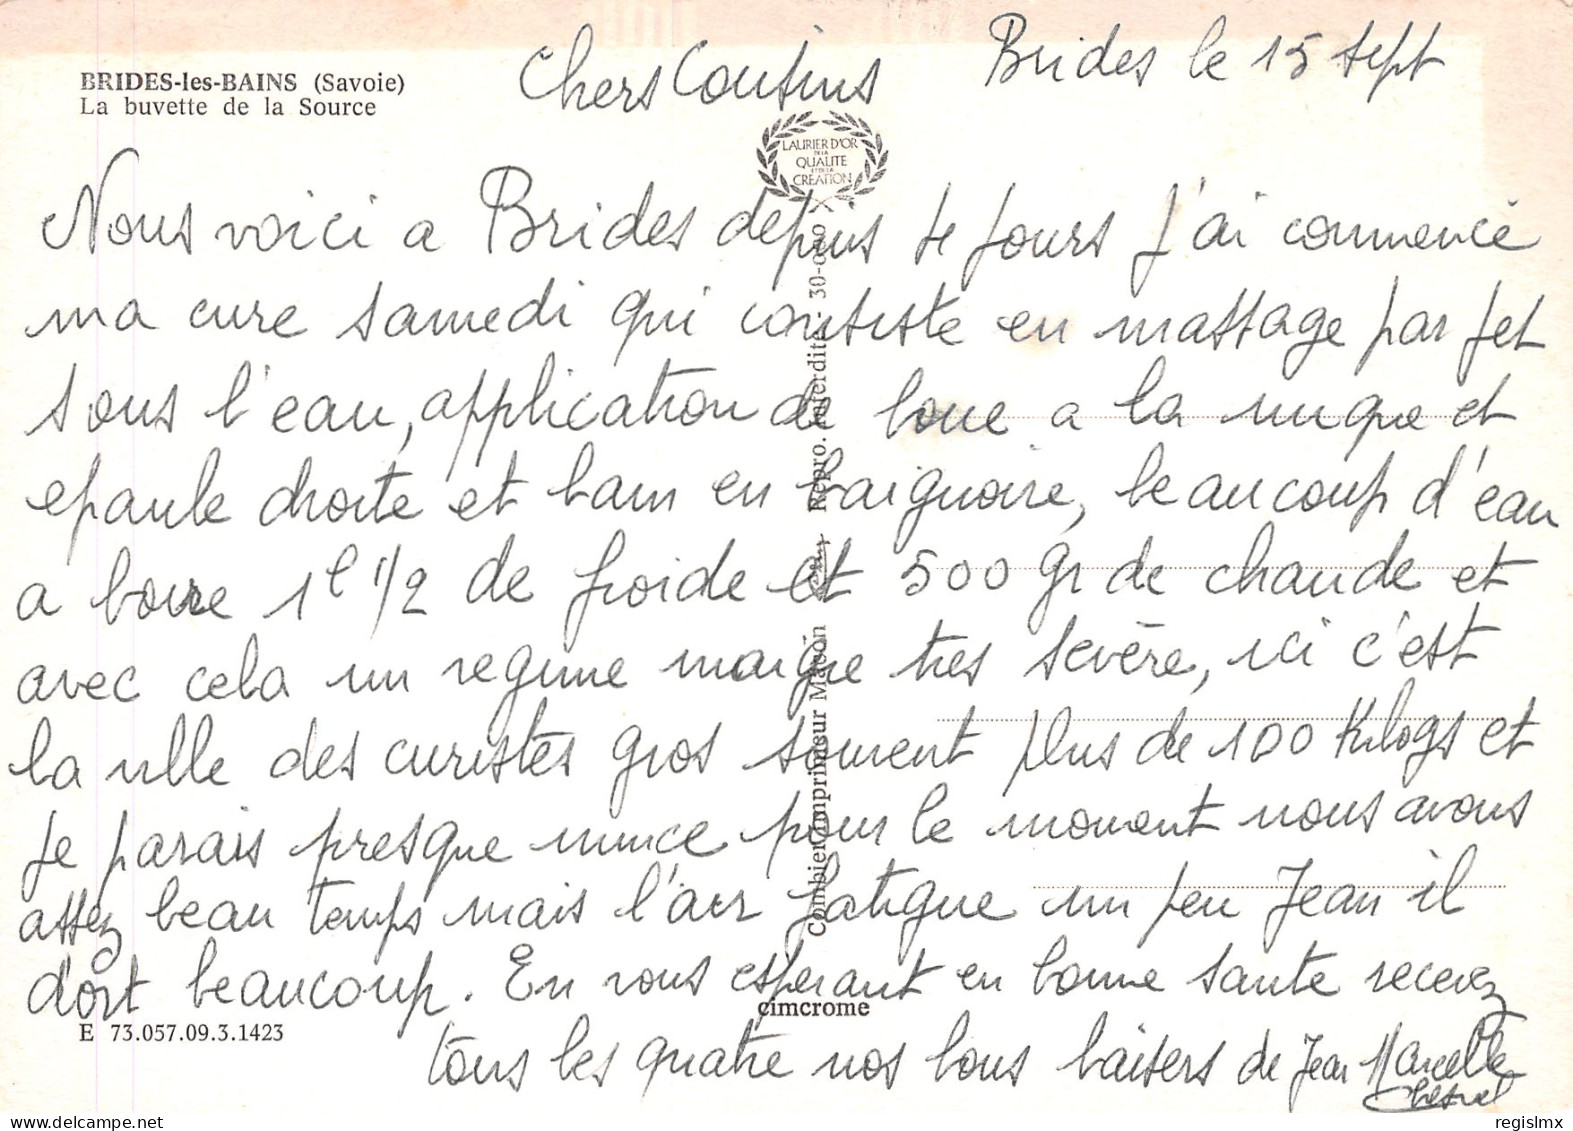 BRIDES-les-BAINS (Savoie)
La buvette de la Source
Chers Cousins
Brides le 15 sept
LAURIER D'OR
DE LA
QUALITE
ET DE LA
CREATION
Nous voici a Brides depuis 4 jours J'ai commencé
ma cure samedi qui consiste en massage par jet
sous l'eau, application de boue a la nuque et
epaule droite et bain en baignoire, beaucoup d'eau
a boire 1l 1/2 de froide et 500 gr de chaude et
avec cela un regime maigre tres sevère, ici c'est
la ville des curistes gros souvent plus de 100 Kilogs et
Je parais presque mince pour le moment nous avons
assez beau temps mais l'air fatigue un peu Jean il
dort beaucoup. En vous esperant en bonne sante recevez
tous les quatre nos bons baisers de Jean Marcelle
Combier imprimeur Macon
Repro. interdite
cimcrome
E 73.057.09.3.1423
regislmx